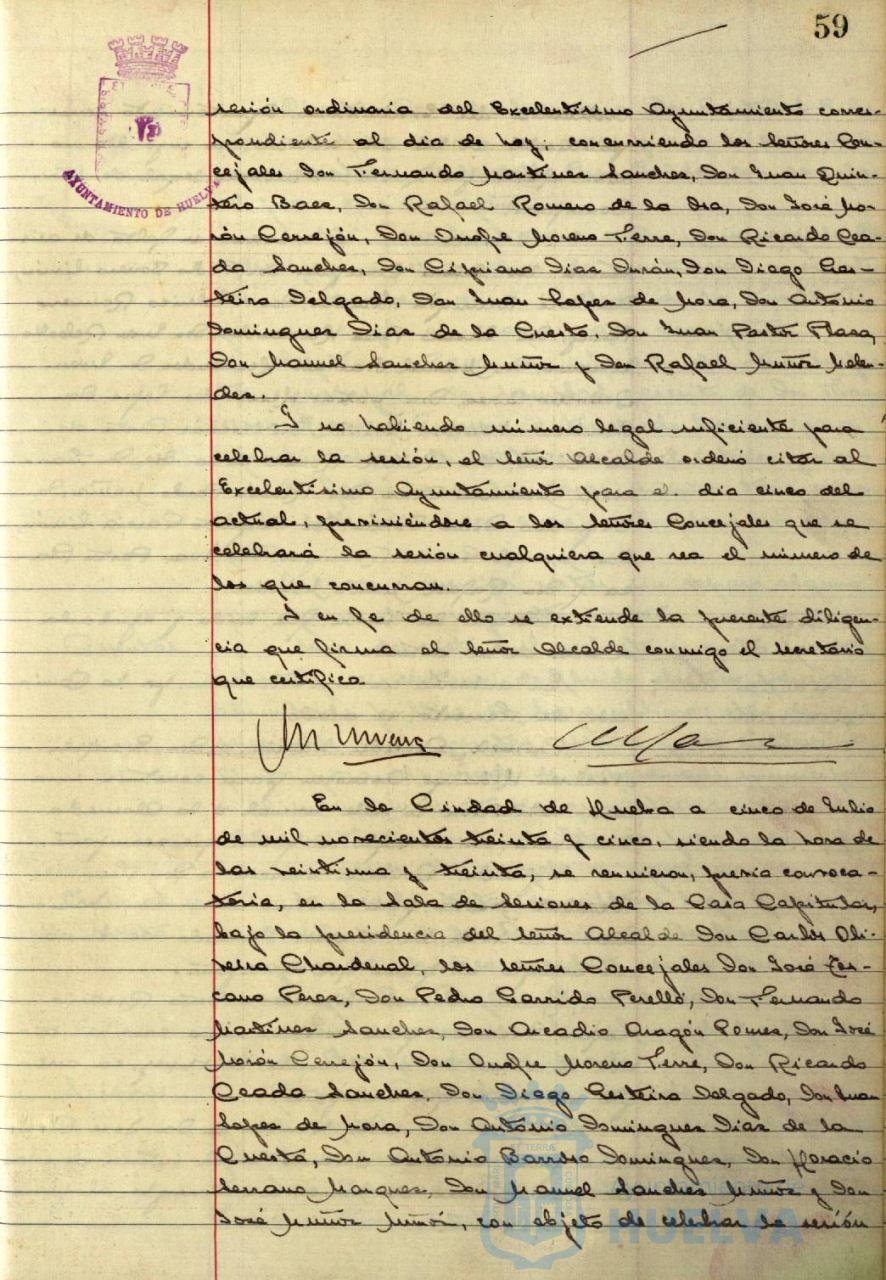 59
AYUNTAMIENTO DE HUELVA
sesión ordinaria del Excelentísimo Ayuntamiento corres-
pondiente al dia de hoy; concurriendo los señores Con-
cejales Don Fernando Martinez Sanchez, Don Juan Quin-
tero Baez, Don Rafael Romero de la Osa, Don José Mo-
rón Cerrejón, Don Onofre Moreno Terre, Don Ricardo Cea-
da Sanchez, Don Cipriano Diaz Durán, Don Diego Ges-
teira Delgado, Don Juan Lopez de Mora, Don Antonio
Dominguez Diaz de la Cuesta, Don Juan Pastor Plaza,
Don Manuel Sanchez Muñoz y Don Rafael Muñoz Melen-
dez.
Y no habiendo número legal suficiente para
celebrar la sesión, el señor Alcalde ordenó citar al
Excelentísimo Ayuntamiento para el dia cinco del
actual, previniéndose a los señores Concejales que se
celebrará la sesión cualquiera que sea el número de
los que concurran.
Y en fe de ello se extiende la presente diligen-
cia que firma el señor Alcalde conmigo el secretario
que certifica
En la Ciudad de Huelva a cinco de Julio
de mil novecientos treinta y cinco, siendo la hora de
las veintiuna y treinta, se reunieron, previa convoca-
toria, en la Sala de Sesiones de la Casa Capitular,
bajo la presidencia del señor Alcalde Don Carlos Oli-
veira Chardenal, los señores Concejales Don José Tos-
cano Perez, Don Pedro Garrido Perelló, Don Fernando
Martinez Sanchez, Don Arcadio Aragón Gomez, Don José
Morón Cerrejón, Don Onofre Moreno Terre, Don Ricardo
Ceada Sanchez, Don Diego Gesteira Delgado, Don Juan
Lopez de Mora, Don Antonio Dominguez Diaz de la
Cuesta, Don Antonio Barroso Dominguez, Don Horacio
Serrano Marquez, Don Manuel Sanchez Muñoz y Don
José Muñoz Muñoz, con objeto de celebrar la sesión
HUELVA